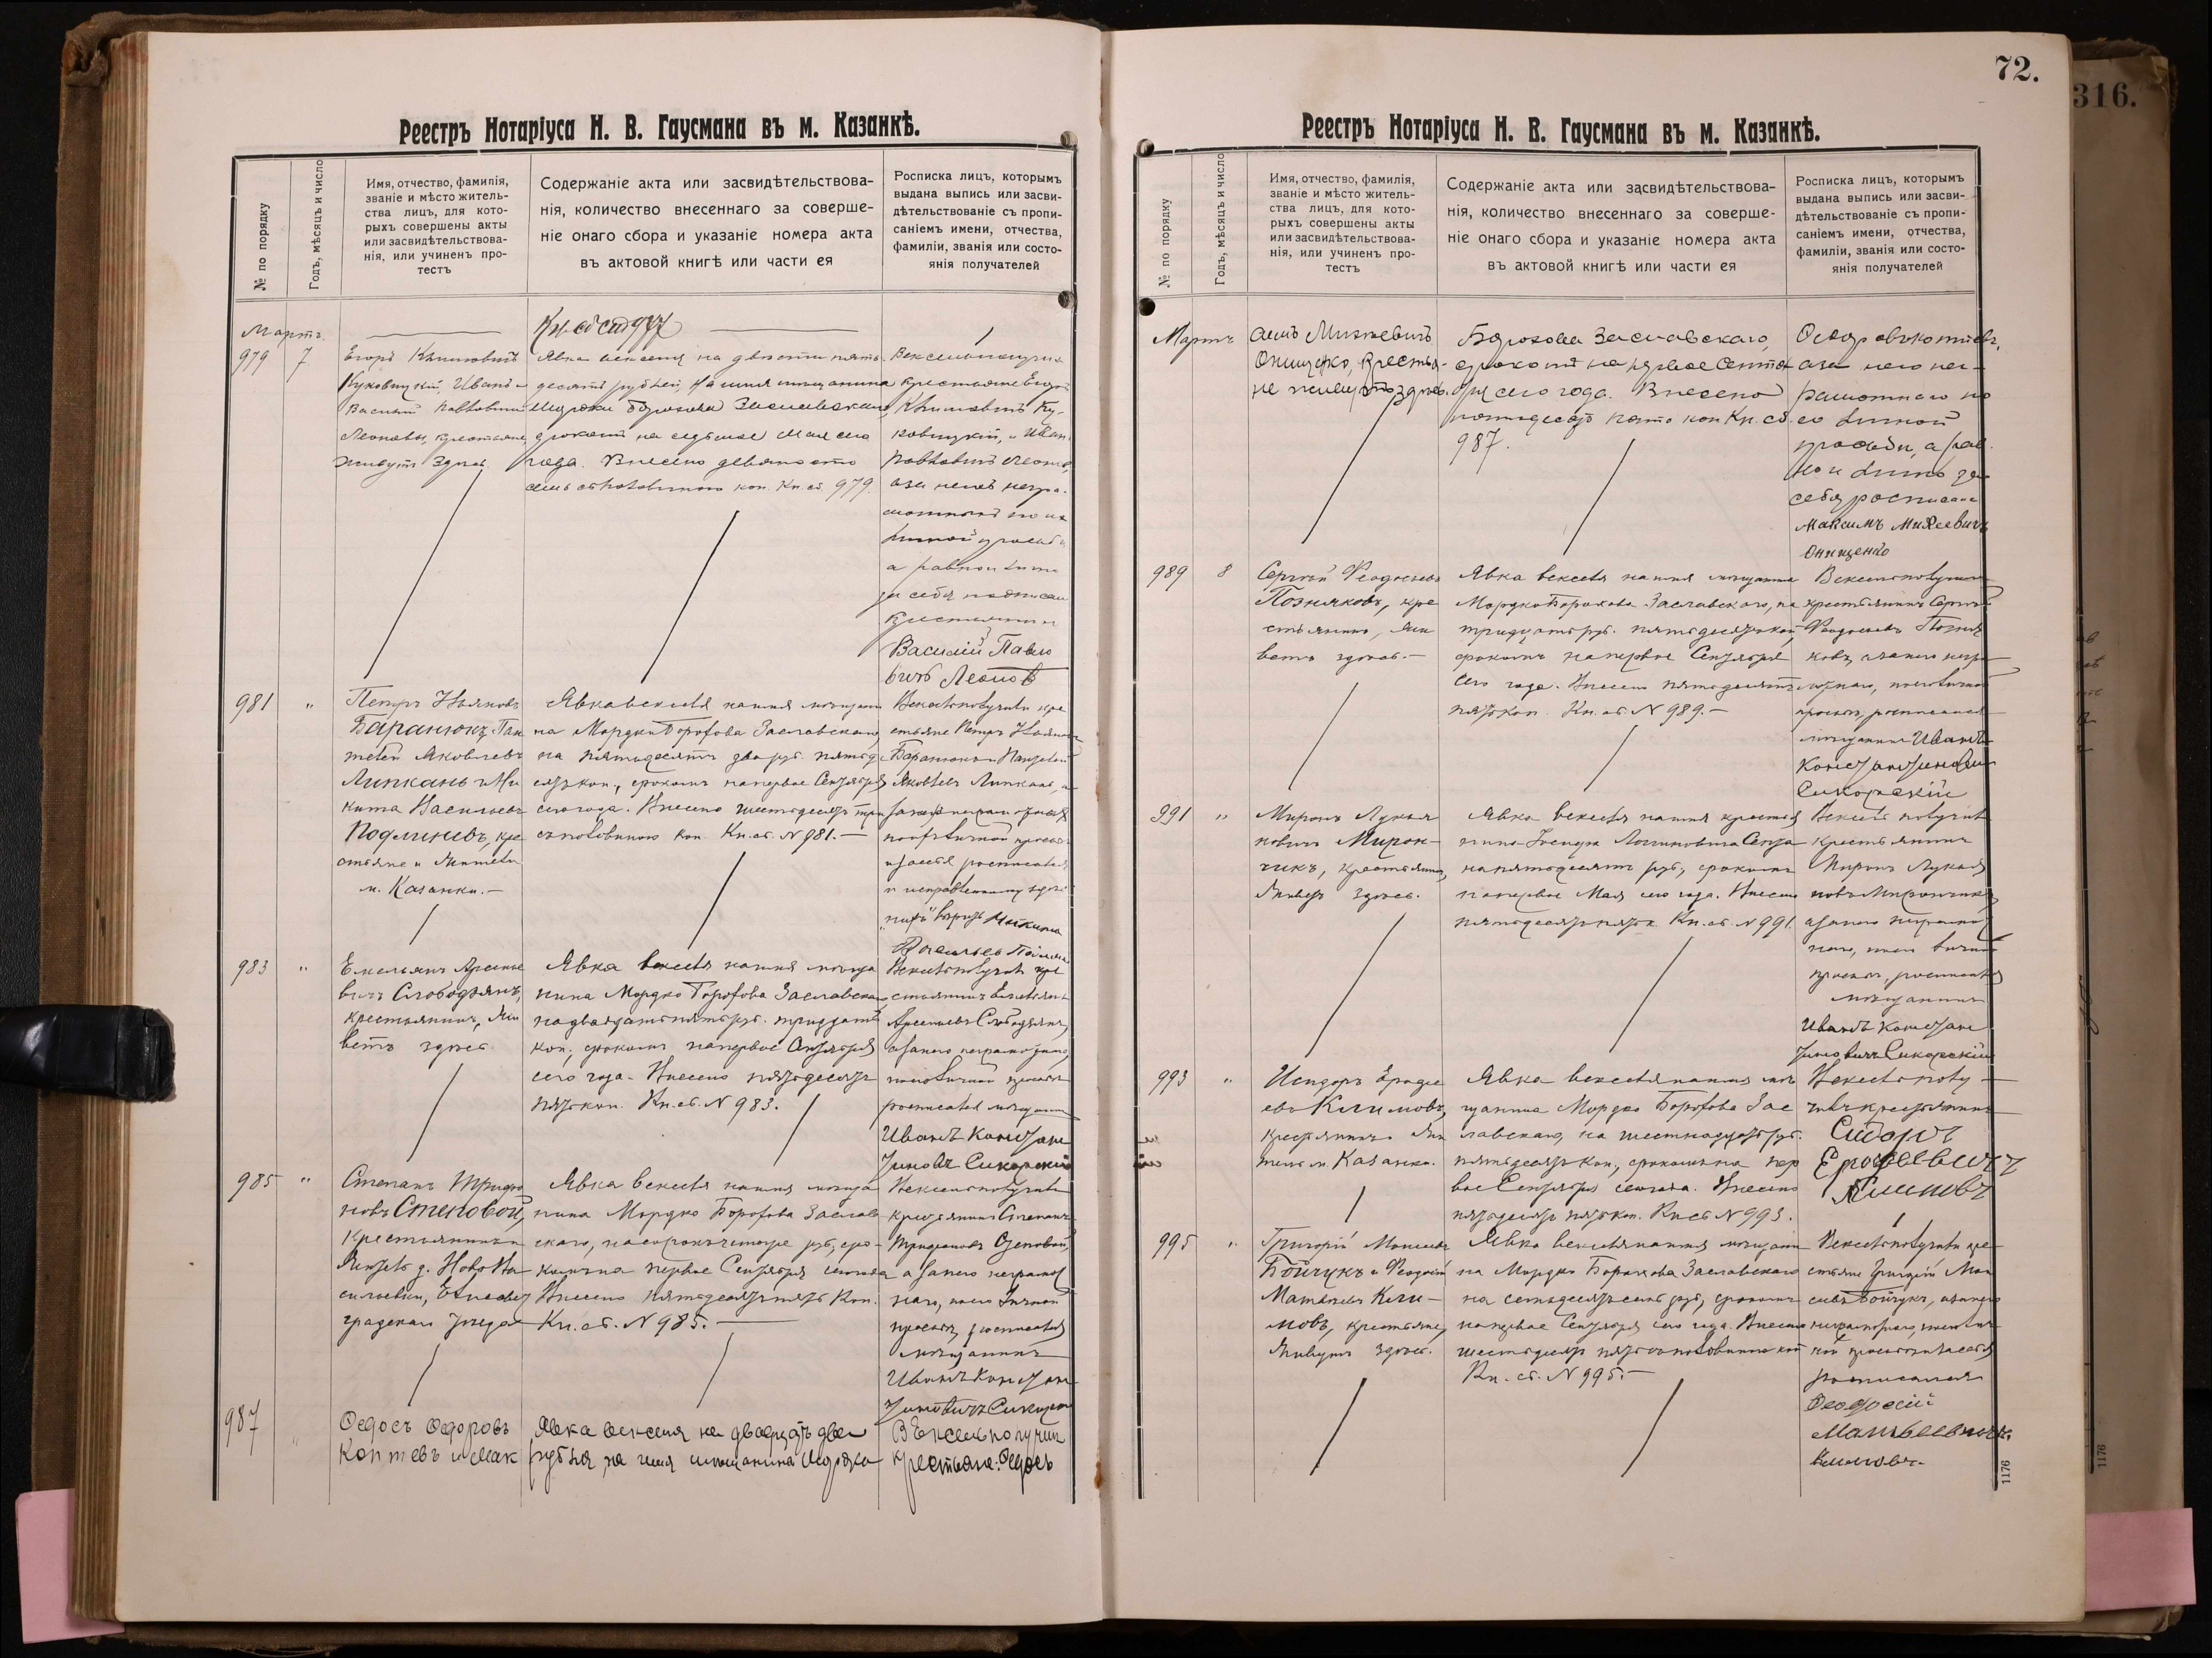 Реестръ Нотаріуса Н. В. Гаусмана въ м. Казанкѣ.
№ по порядку
Годъ, мѣсяцъ и число
Имя, отчество, фамилія,
званіе и мѣсто житель-
ства лицъ, для кото-
рыхъ совершены акты
или засвидѣтельствова-
нія, или учиненъ про-
тестъ
Содержаніе акта или засвидѣтельствова-
нія, количество внесеннаго за соверше-
ніе онаго сбора и указаніе номера акта
въ актовой книгѣ или части ея
Росписка лицъ, которымъ
выдана выпись или засви-
дѣтельствованіе съ пропи-
саніемъ имени, отчества,
фамиліи, званія или состо-
янія получателей
Мартъ.
Кн. сб. 977
979
7.
Егоръ Климовичъ
Куковицкій Иванъ и
Василій Павловичи
Леоновы, крестьяне,
живутъ здѣсь.
Явка векселя на двѣсти пять-
десятъ рублей, на имя мѣщанина
Мордки Борохова Заславскаго
срокомъ на седьмое Мая сего
года. Внесено девяносто
семь съ половиною коп. Кн. сб. 979.
Вексель получили
крестьяне Егоръ
Климовичъ Ку-
ковицкій, и Иванъ
Павловичъ Леоновъ,
а за нихъ негра-
мотныхъ по их
личной просьбѣ
а равно и лично
за себя подписал
крестьянинъ
Василій Павло
вичъ Леоновъ
981
"
Петръ Ульяновъ
Баранюкъ, Пан
телей Яковлевъ
Липканъ и Ни
кита Васильевъ
Подлиневъ, кре
стьяне и жители
м. Казанки.-
Явка векселя на имя мѣщани
на Мордки Борохова Заславскаго,
на пятьдесятъ два руб. пятьд
есятъ коп., срокомъ на первое Сентября
сего года. Внесено шестьдесятъ три
съ половиною коп. Кн. сб. N 981.-
Вексель получили кре
стьяне Петръ Ульянов
Баранюкъ и Пантелей
Яковлевъ Липканъ, а
по ихъ личной просьбѣ
и за себя росписался
Никита
Васильевъ
983
"
Емельянъ Арсенье
вичъ Слободянъ,
крестьянинъ, жи
ветъ здѣсь
Явка векселя на имя мѣща
нина Мордко Борохова Заславскаго,
на двадцать пять руб. тридцать
коп., срокомъ на первое Сентября
сего года. Внесено пятьдесятъ
пять коп. Кн. сб. N 983.
Вексель получилъ кре
стьянинъ Емельянъ
Арсеньевъ Слободянъ,
а за него неграмотнаго,
по его личной просьбѣ
росписался мѣщанинъ
Иванъ Констан
тиновъ Сикорскій
985
"
Степанъ Трифо
новъ Степовой,
крестьянинъ и
житель д. Ново Ва
сильевки, Елисавет
градскаго уѣзда
Явка векселя на имя мѣща
нина Мордко Борохова Заслав
скаго, на сорокъ четыре руб., сро-
комъ на первое Сентября сего года
Внесено пятьдесятъ пять коп.
Кн. сб. N 985.
Вексель получилъ
крестьянинъ Степанъ
Трифоновъ Степовой,
а за него неграмот
наго, по его личной
просьбѣ, росписался
мѣщанинъ
Иванъ Констан
тиновичъ Сикорск
987
"
Ѳедосъ Ѳедоровъ
Коптевъ и Мак
Явка векселя на двадцать два
рубля, на имя мѣщанина Мордка
Вексель получил
крестьяне: Ѳедосъ
72.
316.
Реестръ Нотаріуса Н. В. Гаусмана въ м. Казанкѣ.
№ по порядку
Годъ, мѣсяцъ и число
Имя, отчество, фамилія,
званіе и мѣсто житель-
ства лицъ, для кото-
рыхъ совершены акты
или засвидѣтельствова-
нія, или учиненъ про-
тестъ
Содержаніе акта или засвидѣтельствова-
нія, количество внесеннаго за соверше-
ніе онаго сбора и указаніе номера акта
въ актовой книгѣ или части ея
Росписка лицъ, которымъ
выдана выпись или засви-
дѣтельствованіе съ пропи-
саніемъ имени, отчества,
фамиліи, званія или состо-
янія получателей
Мартъ
симъ Михѣевичъ
Онищенко, крестья-
не живутъ здѣсь.
Борохова Заславскаго,
срокомъ на первое Сентя
бря сего года. Внесено
пятьдесятъ пять коп Кн. сб.
987.
Ѳедоровъ Коптевъ,
а за него не-
грамотнаго по
его личной
просьбѣ, а рав
но и лично за
себя росписался
Максимъ Михеевичъ
Онищенко
989
8
Сергѣй Ѳеодосьевъ
Позняковъ, кре
стьянинъ, жи
ветъ здѣсь.-
Явка векселя на имя мѣщанина
Мордко Борохова Заславскаго, на
тридцать руб. пятьдесятъ коп,
срокомъ на первое Сентября
сего года. Внесено пятьдесятъ
пять коп. Кн. сб. N 989.-
Вексель получилъ
крестьянинъ Сергѣй
Ѳеодосьевъ Позня
ковъ, а за него негра
мотнаго, по его личной
просьбѣ, росписался
мѣщанинъ Иванъ
Константинович
Сикорскій
991
"
Миронъ Лукья
новичъ Мирон-
чикъ, крестьянинъ,
живетъ здѣсь.
Явка векселя на имя крестья
нина
на пятьдесятъ руб., срокомъ
на первое Мая сего года. Внесено
пятьдесятъ пять к. Кн. сб. N 991.
Вексель получилъ
крестьянинъ
Миронъ Лукья
новъ Мирончикъ,
а за него неграмот
наго, по его личной
просьбѣ, росписался
мѣщанинъ
Иванъ Констан
тиновичъ Сикорскій
993
"
Исидоръ Ерофе
евъ Климовъ,
крестьянинъ жи
тель м. Казанки.
Явка векселя на имя мѣ
щанина Мордко Борохова Зас
лавскаго, на шестнадцать руб.
пятьдесятъ коп., срокомъ на пер
вое Сентября сего года. Внесено
пятьдесятъ пять коп. Кн. сб N 993.
Вексель полу-
чилъ крестьянинъ
Сидоръ
Ерофеевичъ
Климовъ
995
"
Григорій Моисеевъ
Бойчукъ и Ѳеодосій
Матвѣевъ Кли-
мовъ, крестьяне,
живутъ здѣсь.
Явка векселя на имя мѣщани
на Мордко Борохова Заславскаго
на семьдесятъ семь руб., срокомъ
на первое Сентября сего года. Внесено
шестьдесятъ пять съ половиною коп
Кн. сб. N 995.-
Вексель получили кре
стьяне Григорій Мои
сеевъ Бойчукъ, а за него
неграмотнаго, по его лич
ной просьбѣ и за себя
росписался
Ѳеодосій
Матвеевичъ
Климовъ
1176
1176